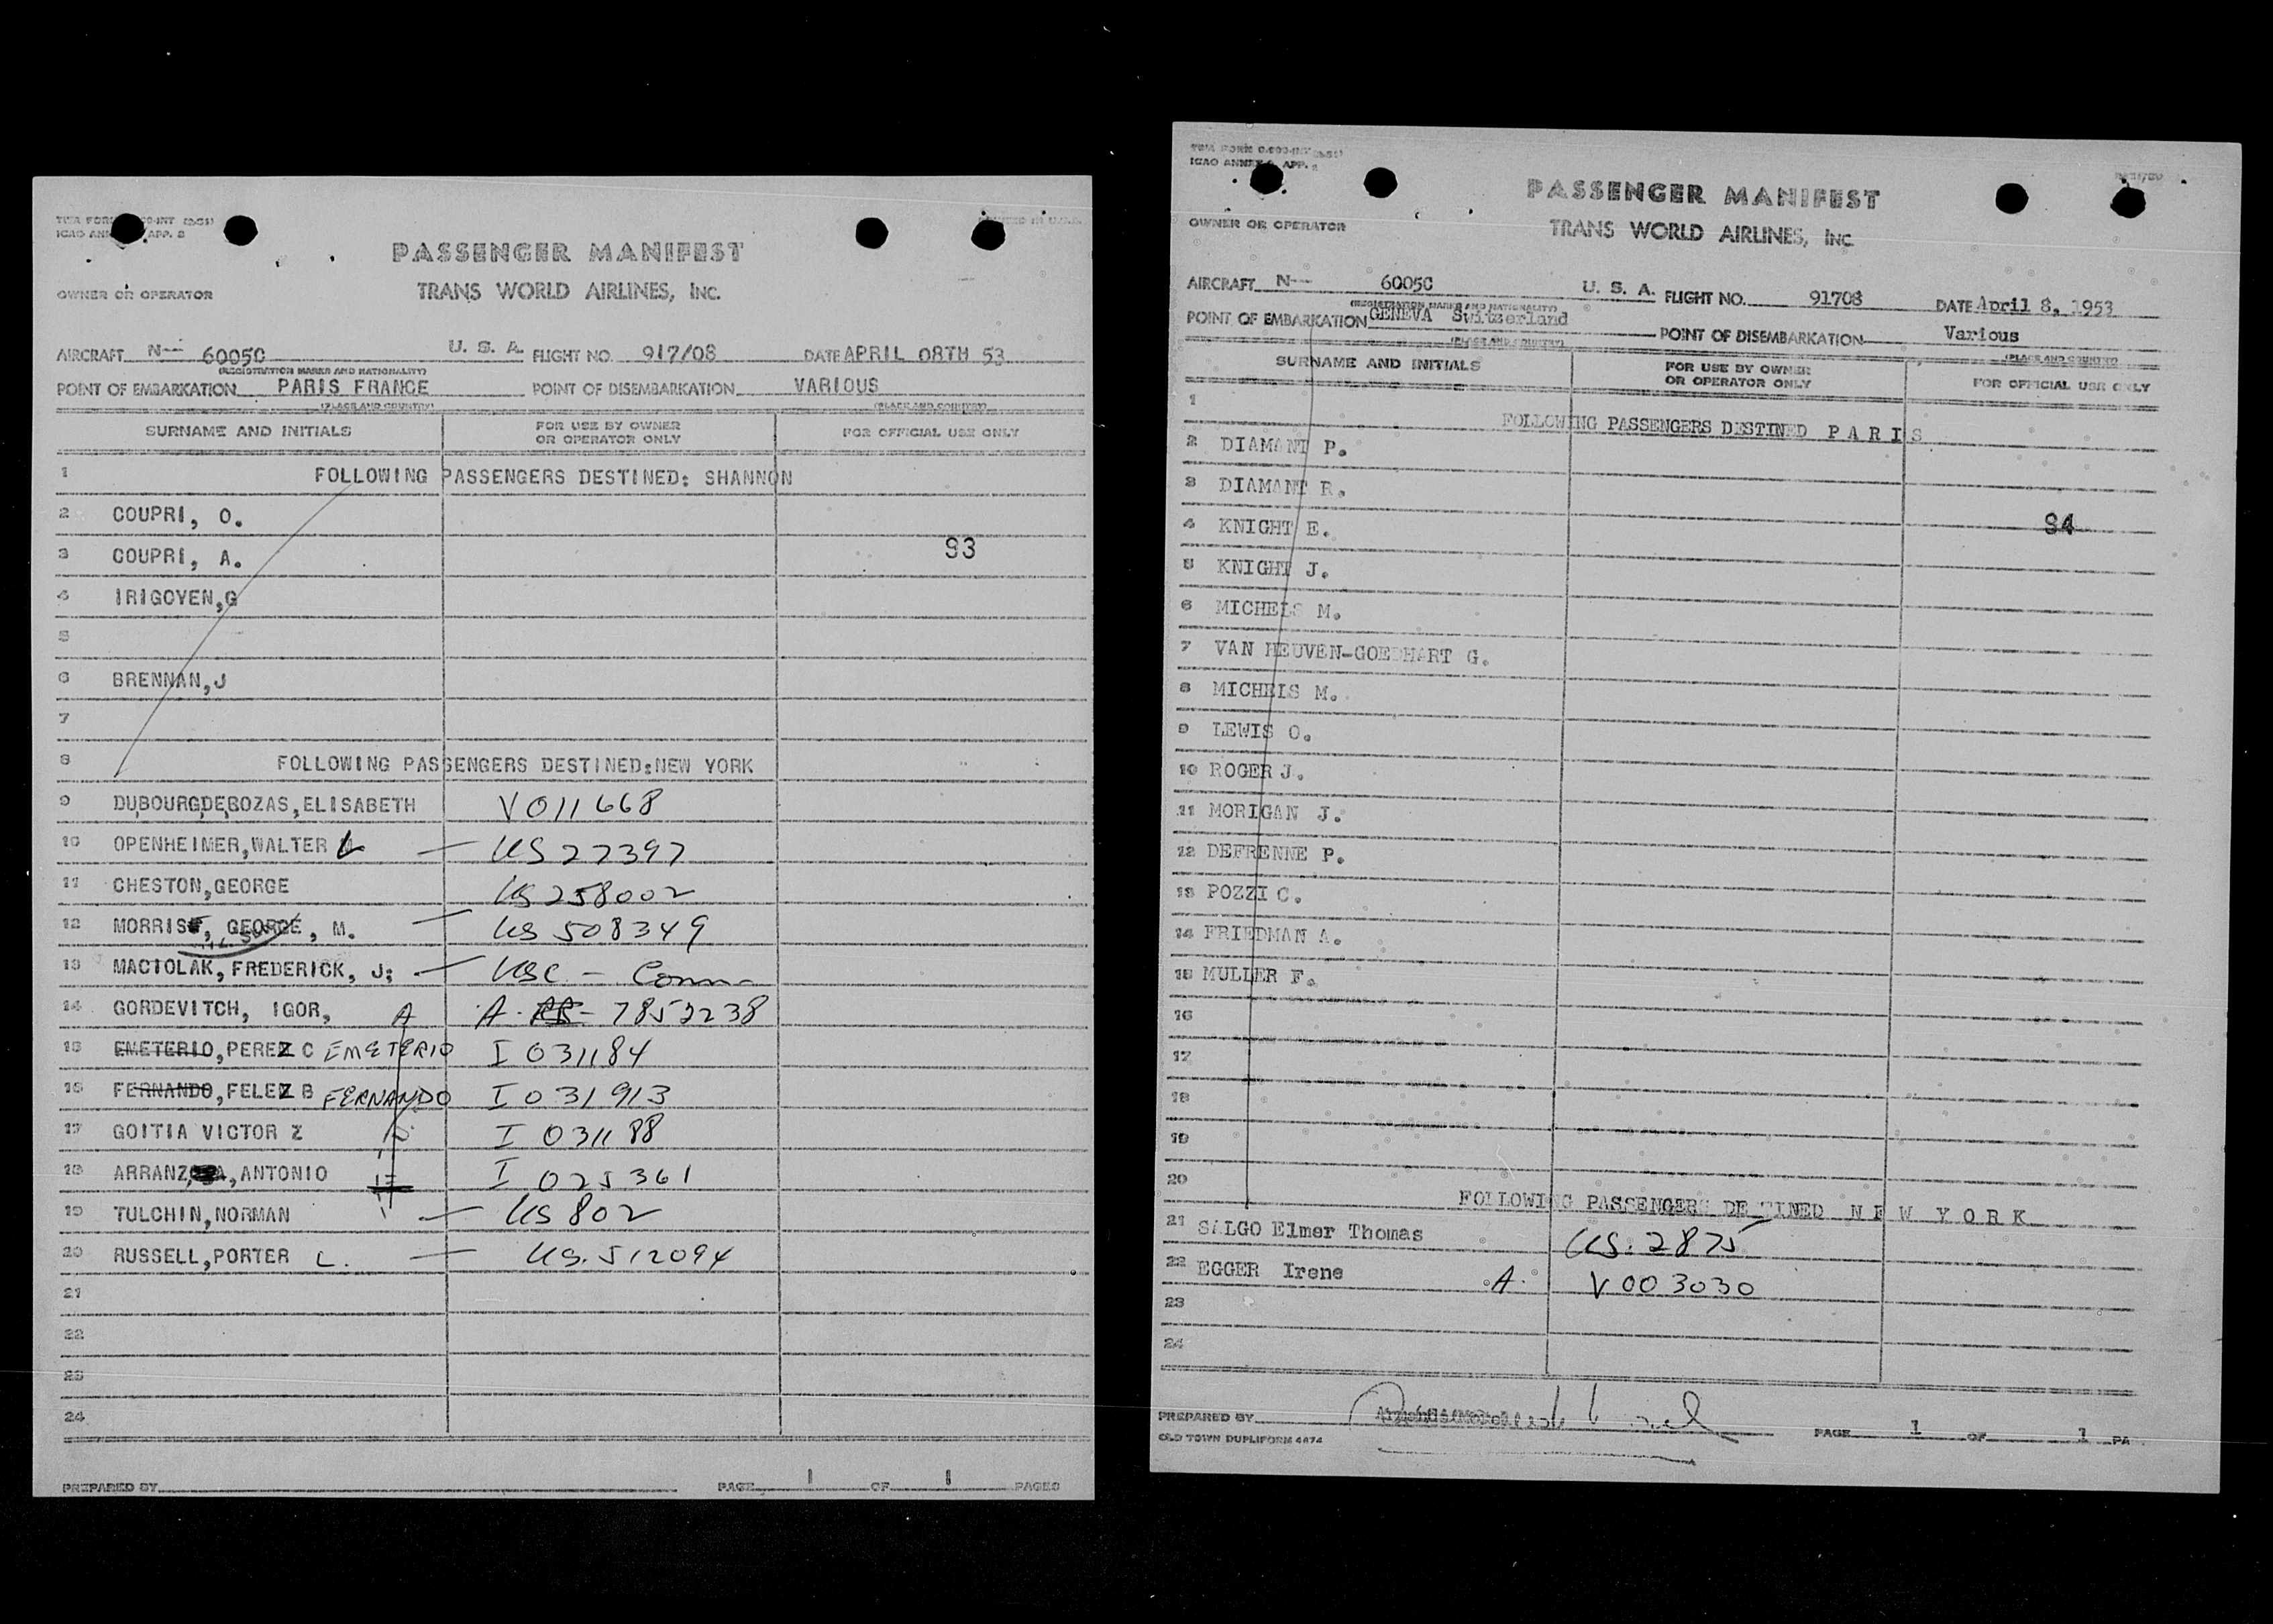 TWA FORM
ICAO ANN APP. 8
PRINTED IN U.S.A.
PASSENGER MANIFEST
OWNER OR OPERATOR
TRANS WORLD AIRLINES, INC.
AIRCRAFT N-- 6005C U. S. A. FLIGHT NO. 917/08 DATE APRIL 08TH 53
(REGISTRATION MARKS AND NATIONALITY)
POINT OF EMBARKATION PARIS FRANCE POINT OF DISEMBARKATION VARIOUS
(PLACE AND COUNTRY) (PLACE AND COUNTRY)
SURNAME AND INITIALS FOR USE BY OWNER OR OPERATOR ONLY FOR OFFICIAL USE ONLY
1 FOLLOWING PASSENGERS DESTINED: SHANNON
2 COUPRI, O.
3 COUPRI, A. 93
4 IRIGOYEN,G
5
6 BRENNAN,J
7
8 FOLLOWING PASSENGERS DESTINED:NEW YORK
9 DUBOURGDEBOZAS,ELISABETH V011668
10 OPENHEIMER,WALTER L — US 27397
11 CHESTON,GEORGE US 258002
12 MORRIS, GEORGE, M. — US 508349
13 MACIOLAK, FREDERICK, J; — USC - Comm
14 GORDEVITCH, IGOR, A A- 7852238
15 EMETERIO,PEREZ C EMETERIO I 031184
16 FERNANDO,FELEZ B FERNANDO I 031913
17 GOITIA VICTOR Z I 031188
18 ARRANZ,ANTONIO I 025361
19 TULCHIN,NORMAN — US 802
20 RUSSELL,PORTER L. — US. 512094
21
22
23
24
PREPARED BY PAGE 1 OF 1 PAGES
TWA FORM
ICAO ANNEX APP.
PASSENGER MANIFEST
OWNER OR OPERATOR
TRANS WORLD AIRLINES, INC.
AIRCRAFT N-- 6005C U. S. A. FLIGHT NO. 91708 DATE April 8, 1953
(REGISTRATION MARKS AND NATIONALITY)
POINT OF EMBARKATION GENEVA Switzerland POINT OF DISEMBARKATION Various
(PLACE AND COUNTRY) (PLACE AND COUNTRY)
SURNAME AND INITIALS FOR USE BY OWNER OR OPERATOR ONLY FOR OFFICIAL USE ONLY
1 FOLLOWING PASSENGERS DESTINED P A R I S
2 DIAMANT P.
3 DIAMANT R.
4 KNIGHT E. 94
5 KNIGHT J.
6 MICHEIS M.
7 VAN HEUVEN-GOEDHART G.
8 MICHEIS M.
9 LEWIS O.
10 ROGER J.
11 MORIGAN J.
12 DEFRENNE P.
13 POZZI C.
14 FRIEDMAN A.
15 MULLER F.
16
17
18
19
20 FOLLOWING PASSENGERS DE TINED N E W Y O R K
21 SALGO Elmer Thomas US. 2875
22 EGGER Irene A. V 003030
23
24
PREPARED BY PAGE 1 OF 1 PA
OLD TOWN DUPLIFORM 4874